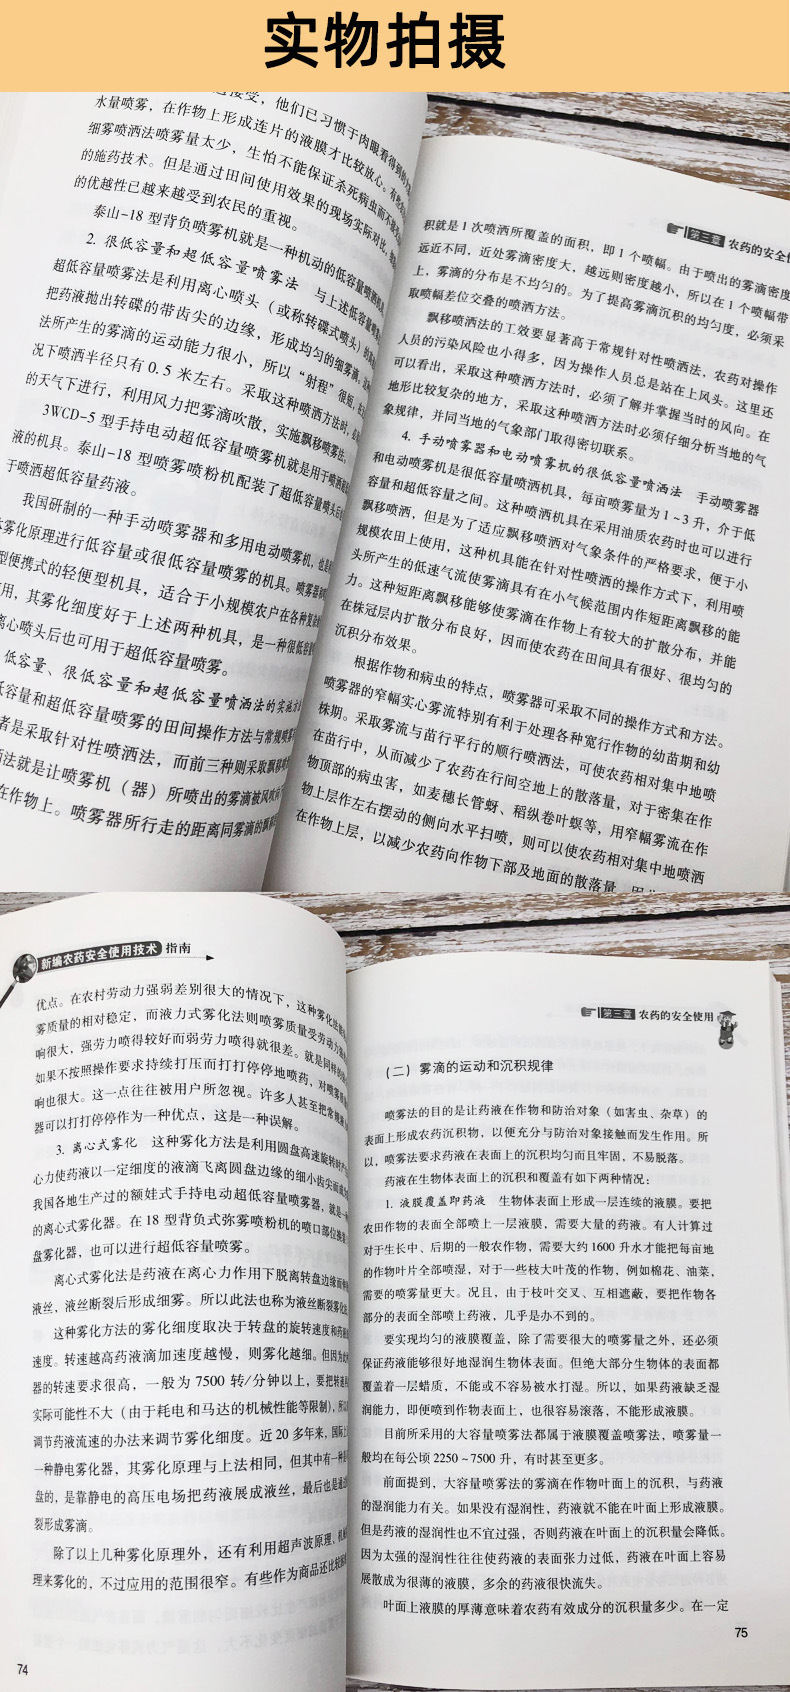 实物拍摄
接受，他们已习惯于肉眼看得到的
水量喷雾，在作物上形成连片的液膜才比较放心。有些
细雾喷洒法喷雾量太少，生怕不能保证杀死病虫而不
的施药技术。但是通过田间使用效果的现场实际对比，
的优越性已越来越受到农民的重视。
泰山-18 型背负喷雾机就是一种机动的低容量喷洒机
2. 很低容量和超低容量喷雾法 与上述低容量喷雾
超低容量喷雾法是利用离心喷头（或称转碟式喷头）的
把药液抛出转碟的带齿尖的边缘，形成均匀的细雾滴。
法所产生的雾滴的运动能力很小，所以“射程”很短，
况下喷洒半径只有 0.5 米左右。采取这种喷洒方法时，
的天气下进行，利用风力把雾滴吹散，实施飘移喷雾法。
3WCD-5 型手持电动超低容量喷雾机就是用于喷洒超低
液的机具。泰山-18 型喷雾喷粉机配装了超低容量喷头后
于喷洒超低容量药液。
我国研制的一种手动喷雾器和多用电动喷雾机，也是
雾化原理进行低容量或很低容量喷雾的机具。喷雾器
型便携式的轻便型机具，适合于小规模农户在各种复杂
用，其雾化细度好于上述两种机具，是一种很低容量
离心喷头后也可用于超低容量喷雾。
低容量、很低容量和超低容量喷洒法的实施方法
低容量和超低容量喷雾的田间操作方法与常规喷雾
者是采取针对性喷洒法，而前三种则采取飘移喷
洒法就是让喷雾机（器）所喷出的雾滴被风吹
在作物上。喷雾器所行走的距离同雾滴的飘移
第三章 农药的安全使
积就是 1 次喷洒所覆盖的面积，即 1 个喷幅。由于喷出的雾滴密度
远近不同，近处雾滴密度大，越远则密度越小，所以在 1 个喷幅带
上，雾滴的分布是不均匀的。为了提高雾滴沉积的均匀度，必须采
取喷幅差位交叠的喷洒方法。
飘移喷洒法的工效要显著高于常规针对性喷洒法，农药对操作
人员的污染风险也小得多，因为操作人员总是站在上风头。这里还
可以看出，采取这种喷洒方法时，必须了解并掌握当时的风向。在
地形比较复杂的地方，采取这种喷洒方法时必须仔细分析当地的气
象规律，并同当地的气象部门取得密切联系。
4. 手动喷雾器和电动喷雾机的很低容量喷洒法 手动喷雾器
和电动喷雾机是很低容量喷洒机具，每亩喷雾量为 1~3 升，介于低
容量和超低容量之间。这种喷洒机具在采用油质农药时也可以进行
飘移喷洒，但是为了适应飘移喷洒对气象条件的严格要求，便于小
规模农田上使用，这种机具能在针对性喷洒的操作方式下，利用喷
头所产生的低速气流使雾滴具有在小气候范围内作短距离飘移的能
力。这种短距离飘移能够使雾滴在作物上有较大的扩散分布，并能
在株冠层内扩散分布良好，因而使农药在田间具有很好、很均匀的
沉积分布效果。
根据作物和病虫的特点，喷雾器可采取不同的操作方式和方法。
喷雾器的窄幅实心雾流特别有利于处理各种宽行作物的幼苗期和幼
株期。采取雾流与苗行平行的顺行喷洒法，可使农药相对集中地喷
在苗行中，从而减少了农药在行间空地上的散落量，对于密集在作
物顶部的病虫害，如麦穗长管蚜、稻纵卷叶螟等，用窄幅雾流在作
物上层作左右摆动的侧向水平扫喷，则可以使农药相对集中地喷洒
在作物上层，以减少农药向作物下部及地面的散落量
新编农药安全使用技术 指南
优点。在农村劳动力强弱差别很大的情况下，这种雾化
雾质量的相对稳定，而液力式雾化法则喷雾质量受劳动力
响很大，强劳力喷得较好而弱劳力喷得就很差。就是同样的
如果不按照操作要求持续打压而打打停停地喷药，对喷雾
响也很大。这一点往往被用户所忽视。许多人甚至把常规
器可以打打停停作为一种优点，这是一种误解。
3. 离心式雾化 这种雾化方法是利用圆盘高速旋转时产生
心力使药液以一定细度的液滴飞离圆盘边缘的细小齿尖而成为
我国各地生产过的额娃式手持电动超低容量喷雾器，就是一种
的离心式雾化器。在 18 型背负式弥雾喷粉机的喷口部位换装
盘雾化器，也可以进行超低容量喷雾。
离心式雾化法是药液在离心力作用下脱离转盘边缘而伸
液丝，液丝断裂后形成细雾。所以此法也称为液丝断裂雾化法
这种雾化方法的雾化细度取决于转盘的旋转速度和药液
速度。转速越高药液滴加速度越慢，则雾化越细。但因为
器的转速要求很高，一般为 7500 转/分钟以上，要把转速
实际可能性不大（由于耗电和马达的机械性能等限制），所以
调节药液流速的办法来调节雾化细度。近 20 多年来，国际上
一种静电雾化器，其雾化原理与上法相同，但其中有一种是
盘的，是靠静电的高压电场把药液展成液丝，最后也是通过
裂形成雾滴。
除了以上几种雾化原理外，还有利用超声波原理、机械
理来雾化的，不过应用的范围很窄。有些作为商品还比较
74
第三章 农药的安全使用
（二）雾滴的运动和沉积规律
喷雾法的目的是让药液在作物和防治对象（如害虫、杂草）的
表面上形成农药沉积物，以便充分与防治对象接触而发生作用。所
以，喷雾法要求药液在表面上的沉积均匀而且牢固，不易脱落。
药液在生物体表面上的沉积和覆盖有如下两种情况：
1. 液膜覆盖即药液 生物体表面上形成一层连续的液膜。要把
农田作物的表面全部喷上一层液膜，需要大量的药液。有人计算过
对于生长中、后期的一般农作物，需要大约 1600 升水才能把每亩地
的作物叶片全部喷湿，对于一些枝大叶茂的作物，例如棉花、油菜，
需要的喷雾量更大。况且，由于枝叶交叉、互相遮蔽，要把作物各
部分的表面全部喷上药液，几乎是办不到的。
要实现均匀的液膜覆盖，除了需要很大的喷雾量之外，还必须
保证药液能够很好地湿润生物体表面。但绝大部分生物体的表面都
覆盖着一层蜡质，不能或不容易被水打湿。所以，如果药液缺乏湿
润能力，即便喷到作物表面上，也很容易滚落，不能形成液膜。
目前所采用的大容量喷雾法都属于液膜覆盖喷雾法，喷雾量一
般均在每公顷 2250~7500 升，有时甚至更多。
前面提到，大容量喷雾法的雾滴在作物叶面上的沉积，与药液
的湿润能力有关。如果没有湿润性，药液就不能在叶面上形成液膜。
但是药液的湿润性也不宜过强，否则药液在叶面上的沉积量会降低。
因为太强的湿润性往往使药液的表面张力过低，药液在叶面上容易
展散成为很薄的液膜，多余的药液很快流失。
叶面上液膜的厚薄意味着农药有效成分的沉积量多少。在一定
75